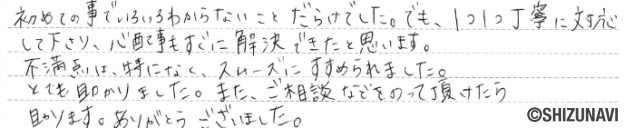 初めての事でいろいろわからないことだらけでした。でも、1つ1つ丁寧に対応
して下さり、心配事もすぐに解決できたと思います。
不満点は、特になく、スムーズにすすめられました。
とても助かりました。また、ご相談などをのって頂けたら
助かります。ありがとうございました。
©SHIZUNAVI